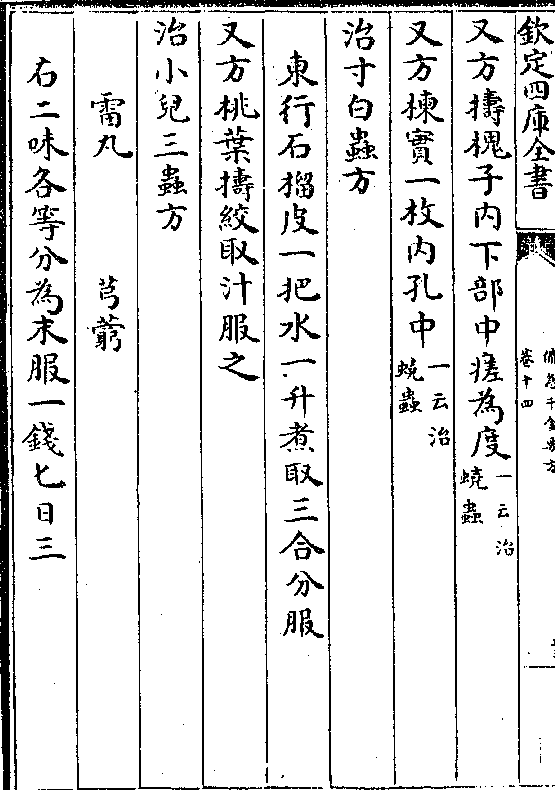 欽定四庫全書
備急千金要方
卷十四
又方擣槐子內下部中瘥為度一云治蟯蟲
又方楝實一枚內孔中一云治蟯蟲
治寸白蟲方
東行石榴皮一把水一升煮取三合分服
又方桃葉擣絞取汁服之
治小兒三蟲方
雷丸 芎藭
右二味各等分為末服一錢七日三